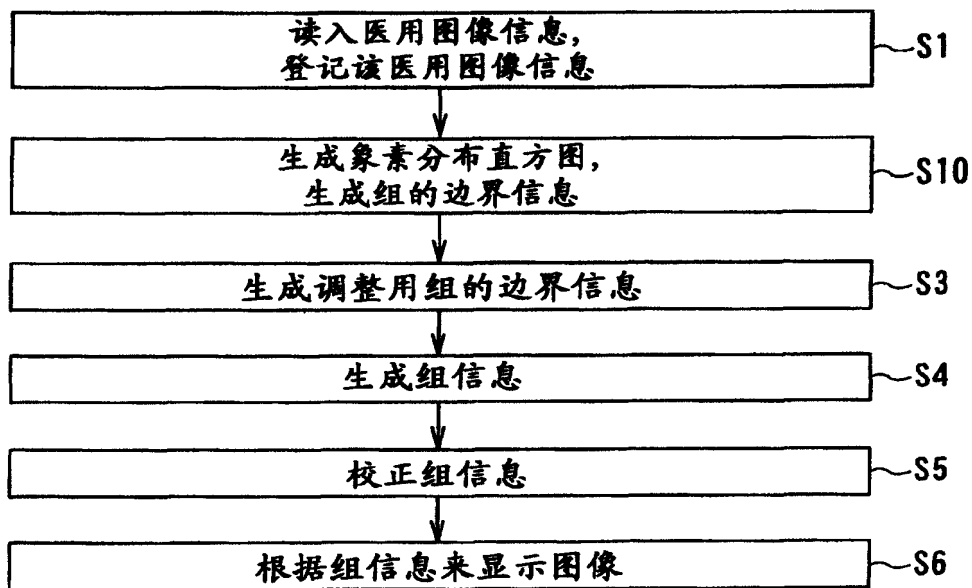 读入医用图像信息,
登记该医用图像信息
S1
生成象素分布直方图,
生成组的边界信息
S10
生成调整用组的边界信息
S3
生成组信息
S4
校正组信息
S5
根据组信息来显示图像
S6